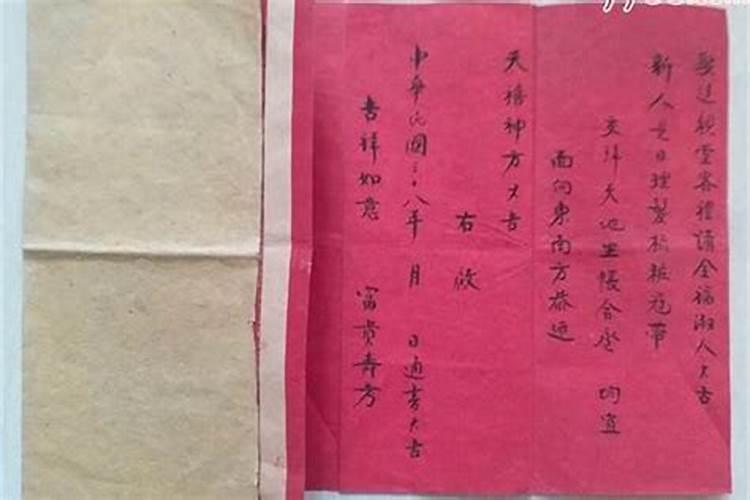 娶送親堂客禮請全福湘人大吉
新人是日理髮梳粧冠帶
交拜天地坐帳合巹 均宜
面向東南方恭迎
天禧神方大吉
右啟
中華民國三十八年 月 日適吉大吉
吉祥如意 富貴壽考